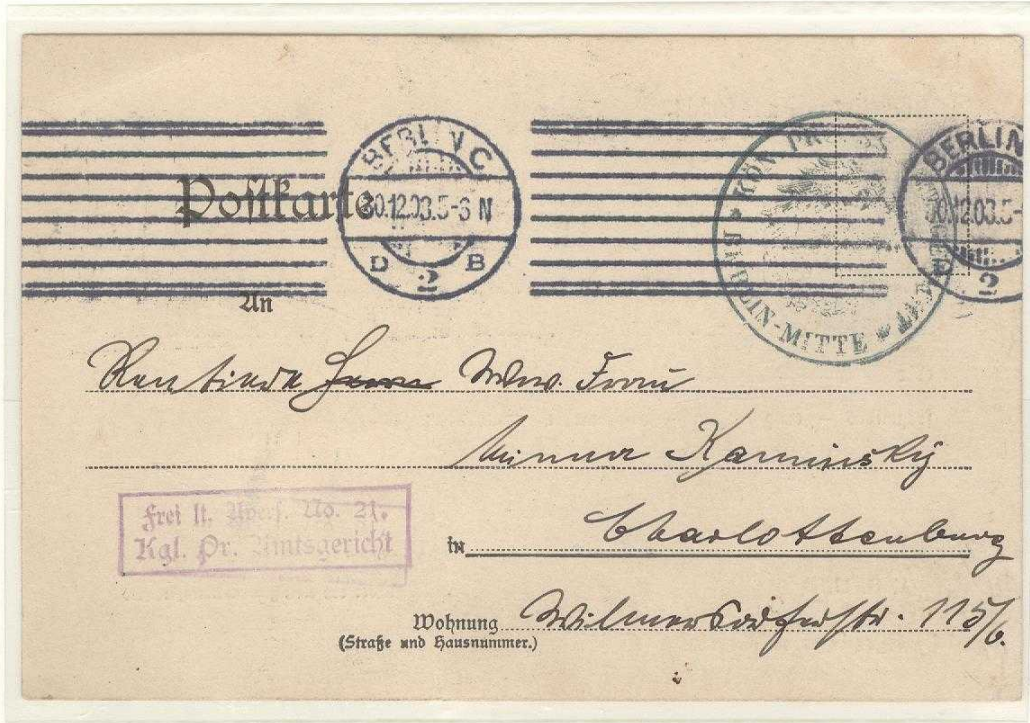 Postkarte
BERLIN C
30.12.03.5-6 N
D 2 B
BERLIN
12.03.5-
2
KÖN. PREUSS. AMTSGERICHT
BERLIN-MITTE
An
Rentiere Herrn Wwe. Frau
Minna Kaminsky
Frei lt. Avers. No. 21.
Kgl. Pr. Amtsgericht
in Charlottenburg
Wohnung Wilmersdorferstr. 115/6.
(Straße und Hausnummer.)